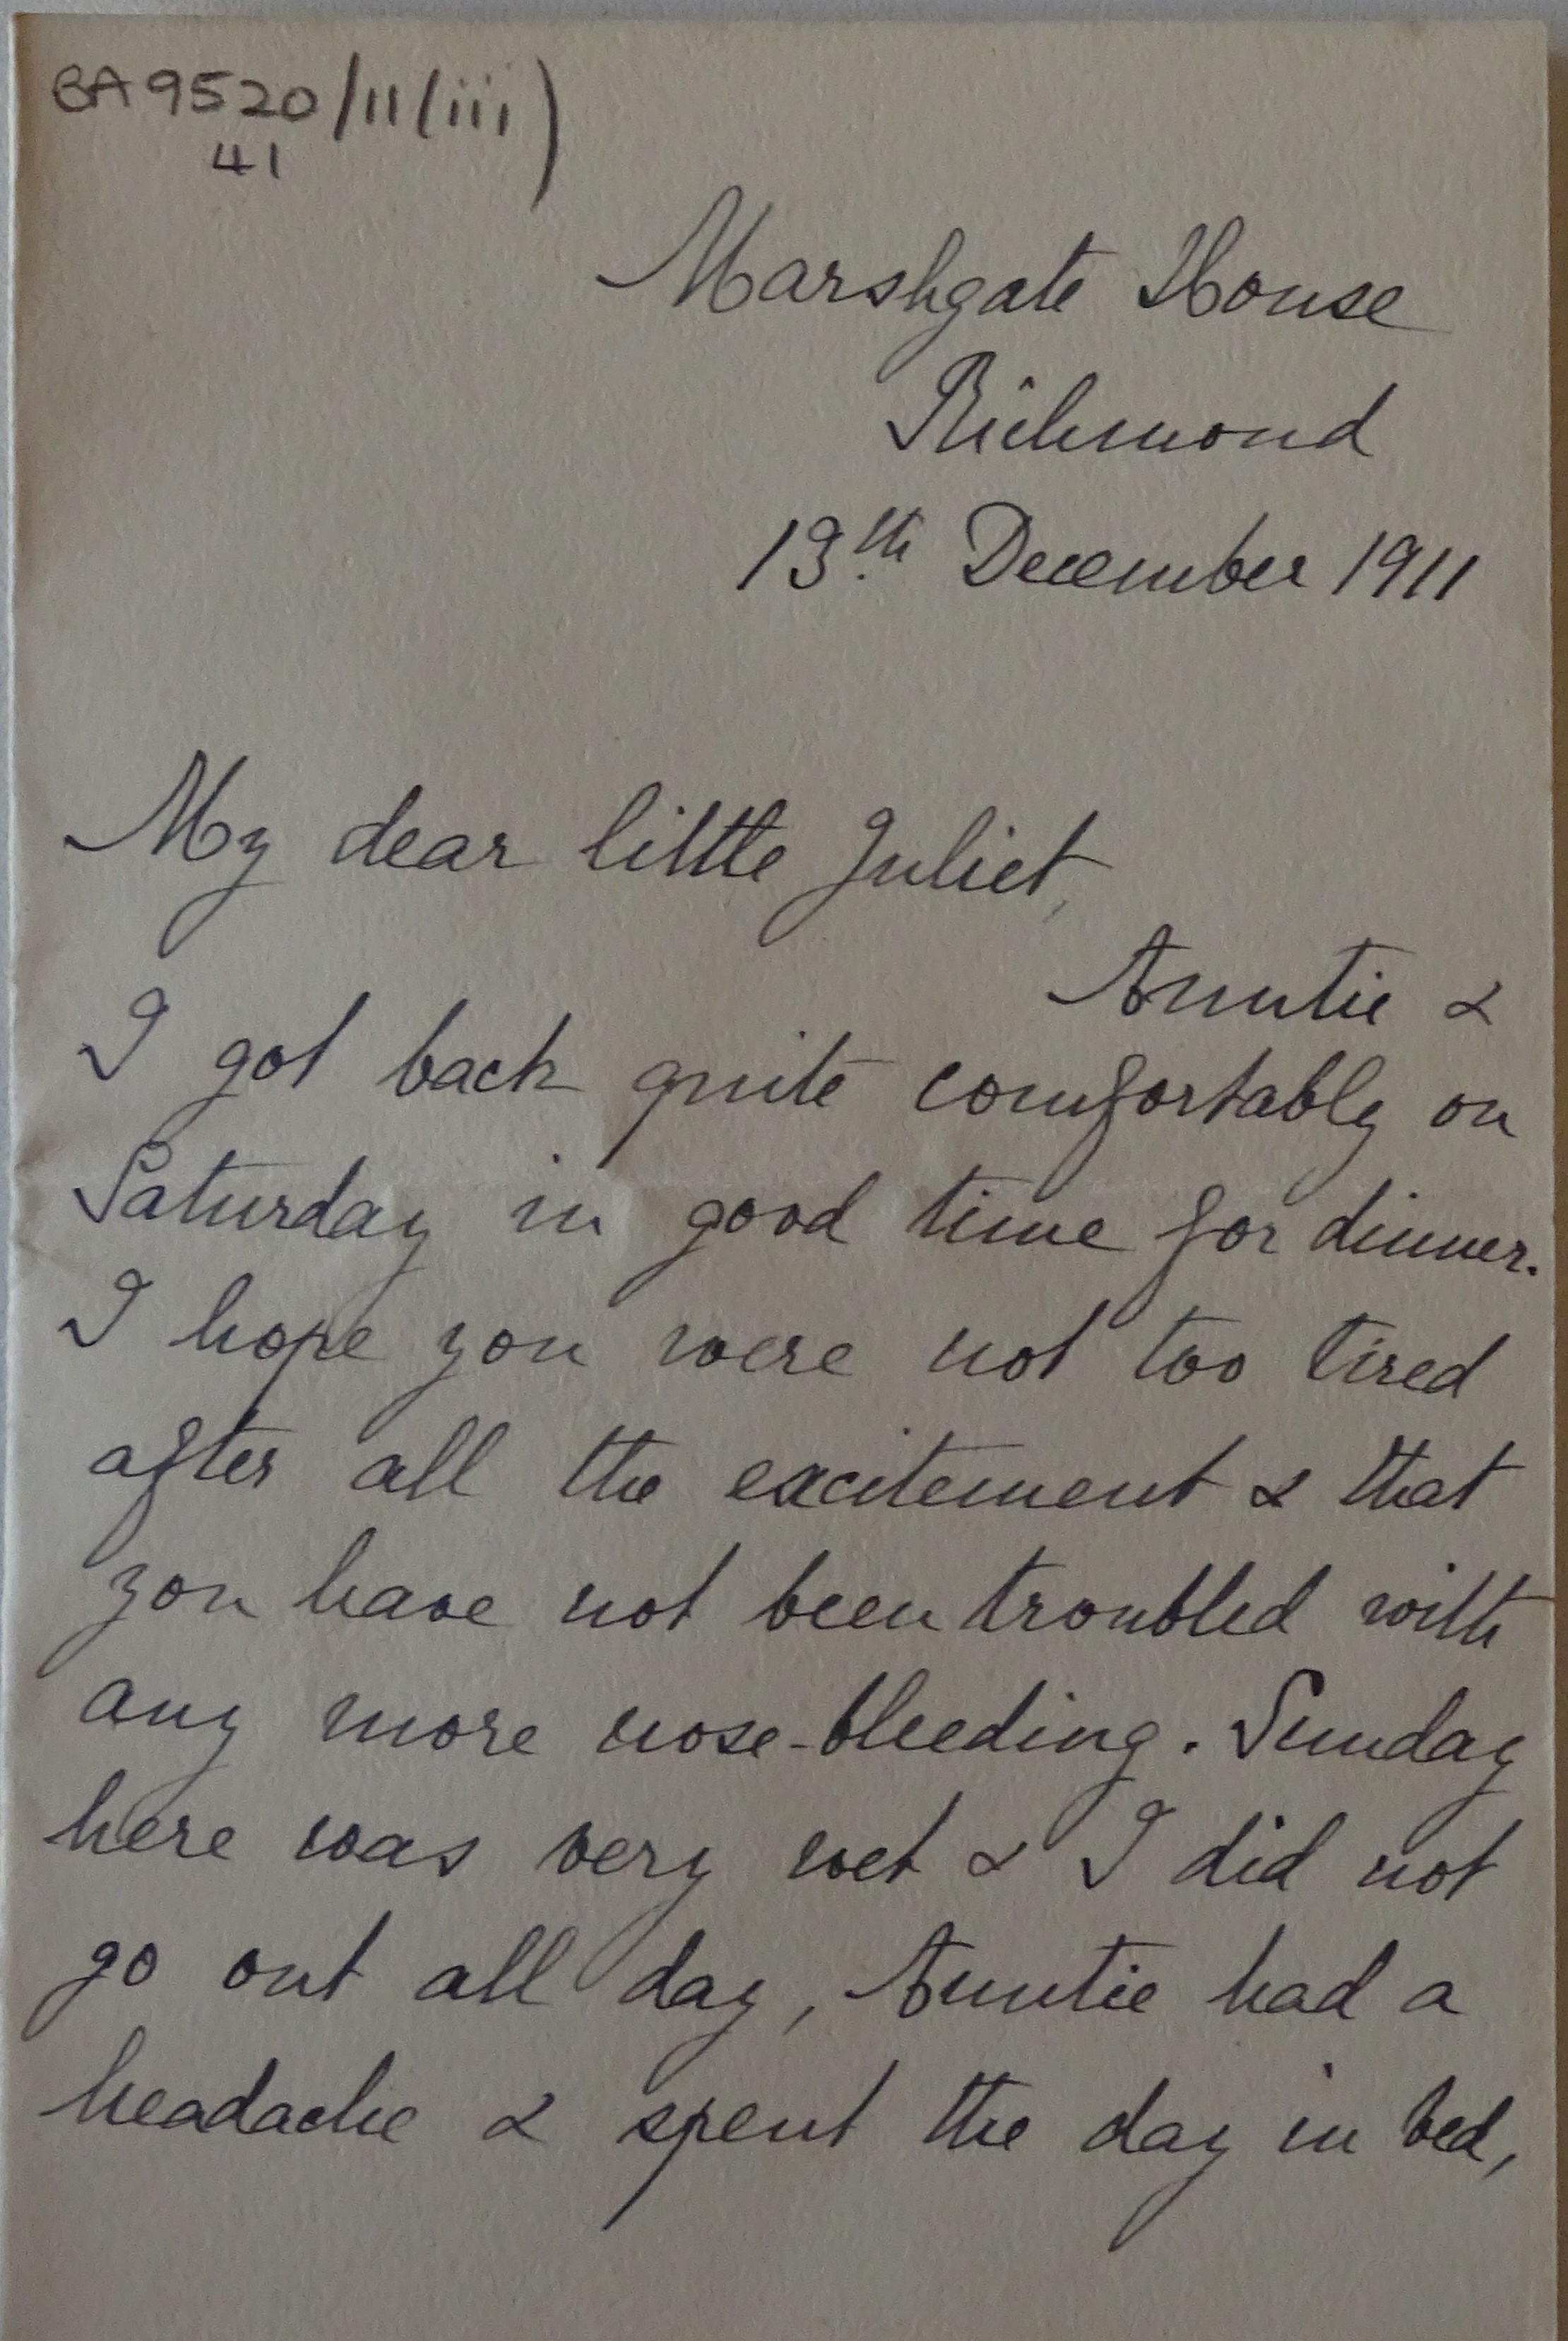 BA9520/11(iii)
41
Marshgate House
Richmond
13th December 1911
My dear little Juliet,
Auntie &
I got back quite comfortably on
Saturday in good time for dinner.
I hope you were not too tired
after all the excitement & that
you have not been troubled with
any more nose-bleeding. Sunday
here was very wet & I did not
go out all day, Auntie had a
headache & spent the day in bed,